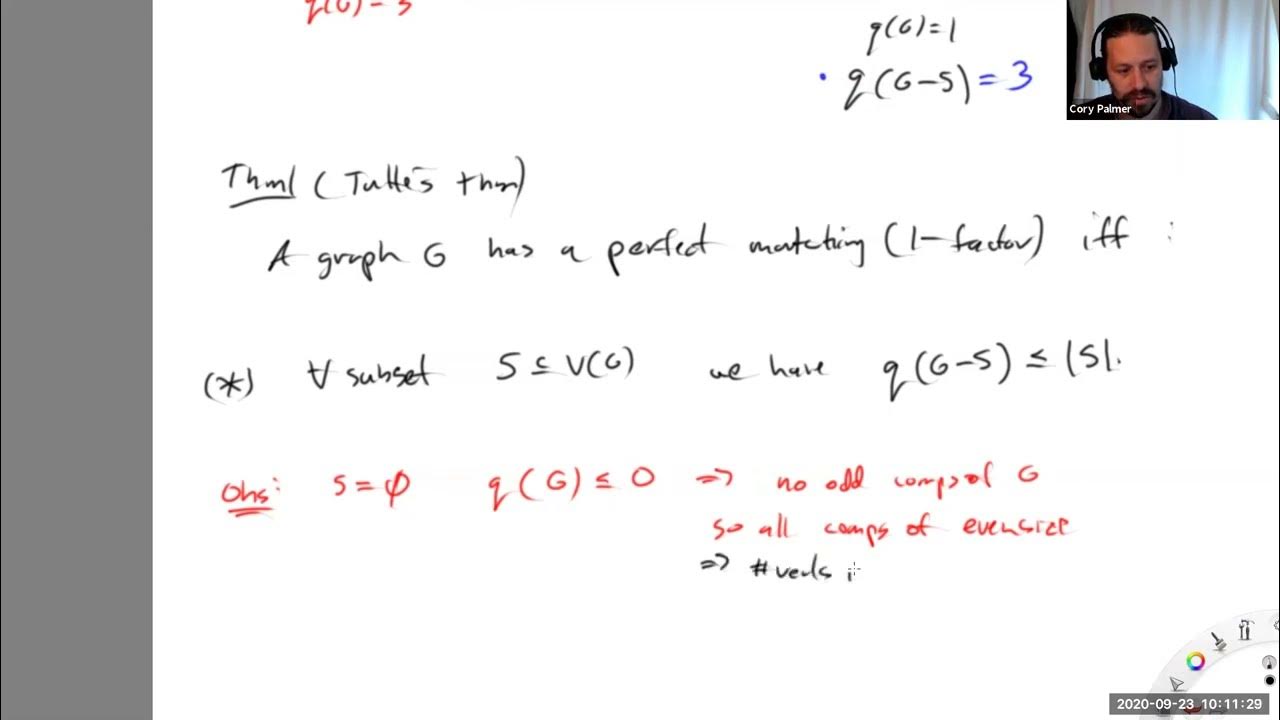 q(G)=3
q(G)=1
• q(G-S) = 3
Cory Palmer
Thm (Tutte's thm)
A graph G has a perfect matching (1-factor) iff :
(*) ∀ subset S ⊆ V(G) we have q(G-S) ≤ |S|.
Obs: S = ∅ q(G) ≤ 0 => no odd comps of G
so all comps of even size
=> # verts i
2020-09-23 10:11:29